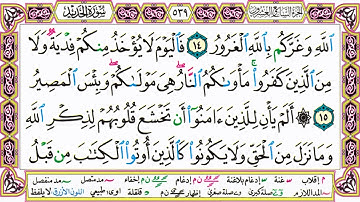 سُورَةُ الحَدِيدِ ٥٣٩ الجُزءُ السَّابِعُ وَالعِشرُونَ
اللَّهِ وَغَرَّكُم بِاللَّهِ الْغَرُورُ ١٤ فَالْيَوْمَ لَا يُؤْخَذُ مِنكُمْ فِدْيَةٌ وَلَا
مِنَ الَّذِينَ كَفَرُوا۟ مَأْوَىٰكُمُ النَّارُ هِيَ مَوْلَىٰكُمْ وَبِئْسَ الْمَصِيرُ
١٥ أَلَمْ يَأْنِ لِلَّذِينَ ءَامَنُوٓا۟ أَن تَخْشَعَ قُلُوبُهُمْ لِذِكْرِ اللَّهِ
وَمَا نَزَلَ مِنَ الْحَقِّ وَلَا يَكُونُوا۟ كَالَّذِينَ أُوتُوا۟ الْكِتَٰبَ مِن قَبْلُ